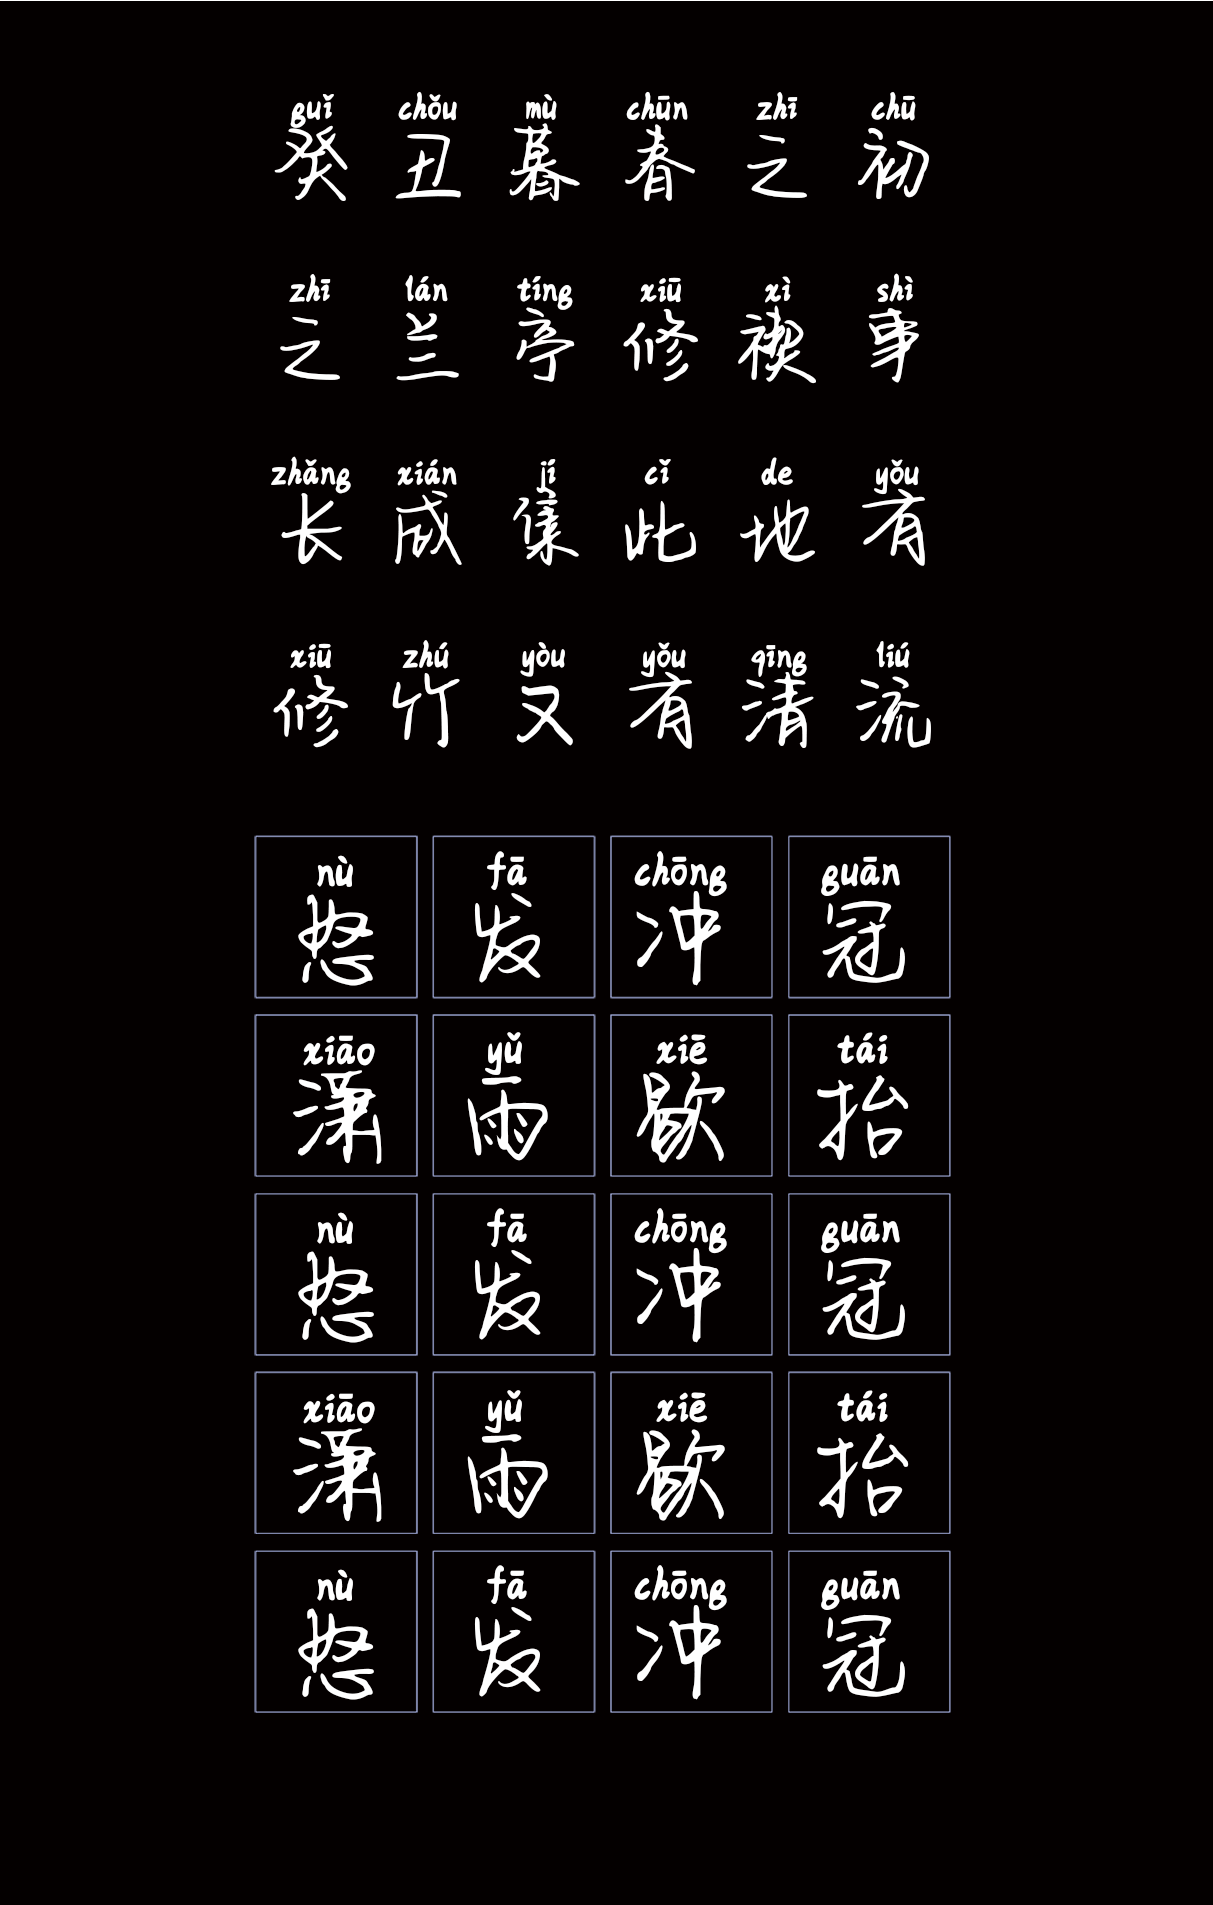 guǐ chǒu mù chūn zhī chū
癸 丑 暮 春 之 初
zhī lán tíng xiū xì shì
之 兰 亭 修 禊 事
zhǎng xián jí cǐ de yǒu
长 咸 集 此 地 有
xiū zhú yòu yǒu qīng liú
修 竹 又 有 清 流
nù fā chōng guān
怒 发 冲 冠
xiāo yǔ xiē tái
潇 雨 歇 抬
nù fā chōng guān
怒 发 冲 冠
xiāo yǔ xiē tái
潇 雨 歇 抬
nù fā chōng guān
怒 发 冲 冠